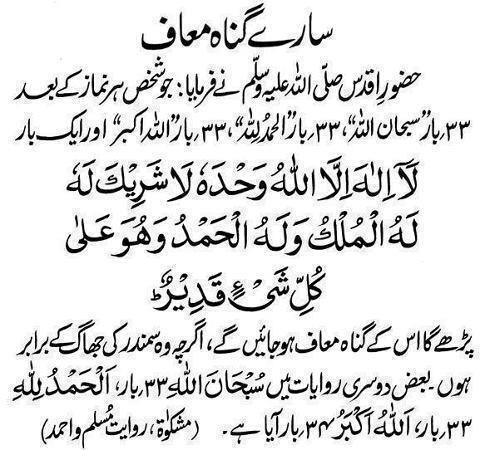 سارے گناہ معاف
حضورِ اقدس صلّی اللہ علیہ وسلّم نے فرمایا: جو شخص ہر نماز کے بعد
۳۳؍بار ”سبحان اللہ“، ۳۳؍بار ”الحمدُ للہ“، ۳۳؍بار ”اللہ اکبر“ اور ایک بار
لَآ اِلٰهَ اِلَّا اللهُ وَحْدَهٗ لَا شَرِيْكَ لَهٗ
لَهُ الْمُلْكُ وَلَهُ الْحَمْدُ وَهُوَ عَلٰى
كُلِّ شَیْءٍ قَدِيْرٌ ؕ
پڑھے گا اس کے گناہ معاف ہو جائیں گے، اگرچہ وہ سمندر کی جھاگ کے برابر
ہوں۔ بعض دوسری روایات میں سُبْحَانَ اللهِ ۳۳؍بار، اَلْحَمْدُ لِلّٰهِ
۳۳؍بار، اَللهُ اَكْبَرُ ۳۴؍بار آیا ہے۔ (مشکوٰۃ، روایت مُسلم و احمد)